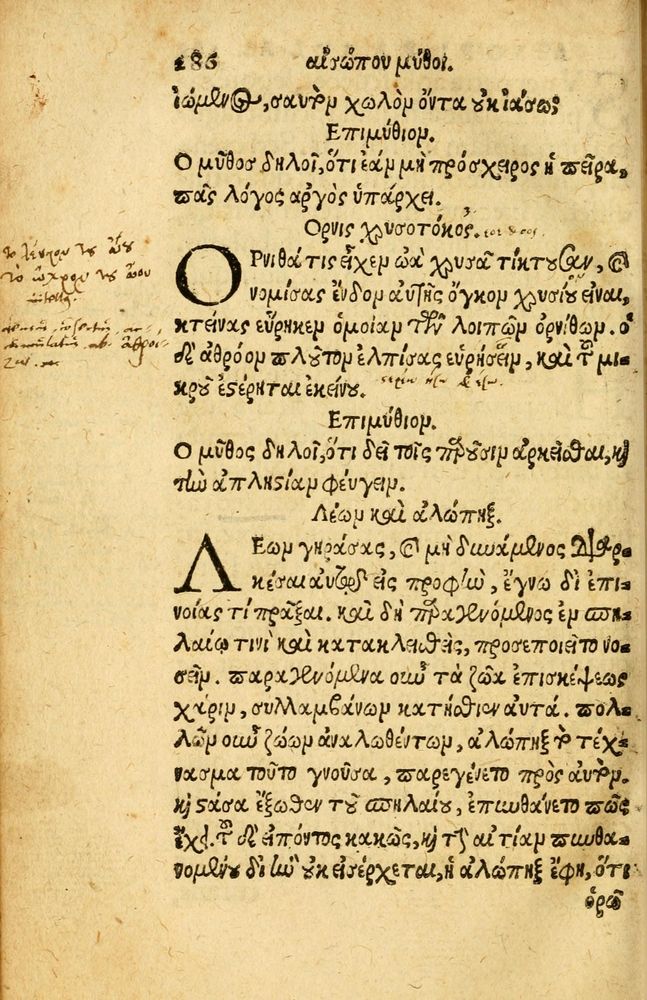 186 αἰσώπου μῦθοι.
ἰώμενος, σαυτὸν χωλὸν ὄντα οὐκ ἰάσω;
Επιμύθιον.
Ο μῦθος δηλοῖ, ὅτι ἐὰν μὴ πρόσχειρος ἡ πεῖρα,
πᾶς λόγος ἀργὸς ὑπάρχει.
Ορνις χρυσοτόκος.
ΟΡνιθά τις εἶχεν ὠὰ χρυσᾶ τίκτουσαν, καὶ
νομίσας ἔνδον αὐτῆς ὄγκον χρυσίου εἶναι,
κτείνας εὕρηκεν ὁμοίαν τῶν λοιπῶν ὀρνίθων. ὁ
δὲ ἀθρόον πλοῦτον ἐλπίσας εὑρήσειν, καὶ τοῦ μι-
κροῦ ἐστέρηται ἐκείνου.
Επιμύθιον.
Ο μῦθος δηλοῖ, ὅτι δεῖ τοῖς παροῦσιν ἀρκεῖσθαι, καὶ
τὴν ἀπληστίαν φεύγειν.
Λέων καὶ ἀλώπηξ.
ΛΕων γηράσας, καὶ μὴ δυνάμενος διαρ-
κέσαι αὑτῷ εἰς τροφὴν, ἔγνω δι' ἐπι-
νοίας τί πρᾶξαι. καὶ δὴ παραγενόμενος ἐν σπη-
λαίῳ τινὶ καὶ κατακλειθεὶς, προσεποιεῖτο νο-
σεῖν. παραγενόμενα οὖν τὰ ζῶα ἐπισκέψεως
χάριν, συλλαμβάνων κατήσθιεν αὐτά. πολ-
λῶν οὖν ζώων ἀναλωθέντων, ἀλώπηξ τὸ τέχ-
νασμα τοῦτο γνοῦσα, παρεγένετο πρὸς αὐτὸν.
καὶ στᾶσα ἔξωθεν τοῦ σπηλαίου, ἐπυνθάνετο πῶς
ἔχει. τοῦ δὲ εἰπόντος κακῶς, καὶ τὴν αἰτίαν πυνθα-
νομένου δι' ἣν οὐκ εἰσέρχεται, ἡ ἀλώπηξ ἔφη, ὅτι
ὁρῶ